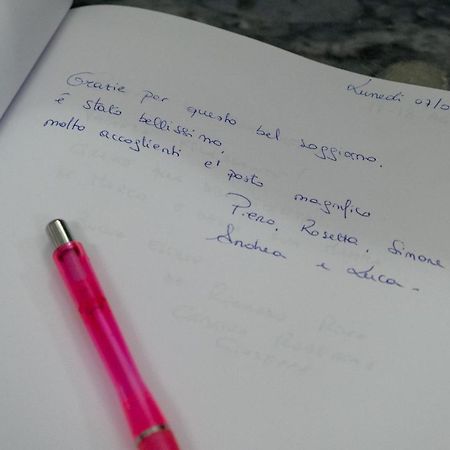 Lunedì 07/0
Grazie per questo bel soggiorno.
é stato bellissimo,
molto accoglienti e' posto magnifico
Piero, Rosetta, Simone
Andrea e Luca.